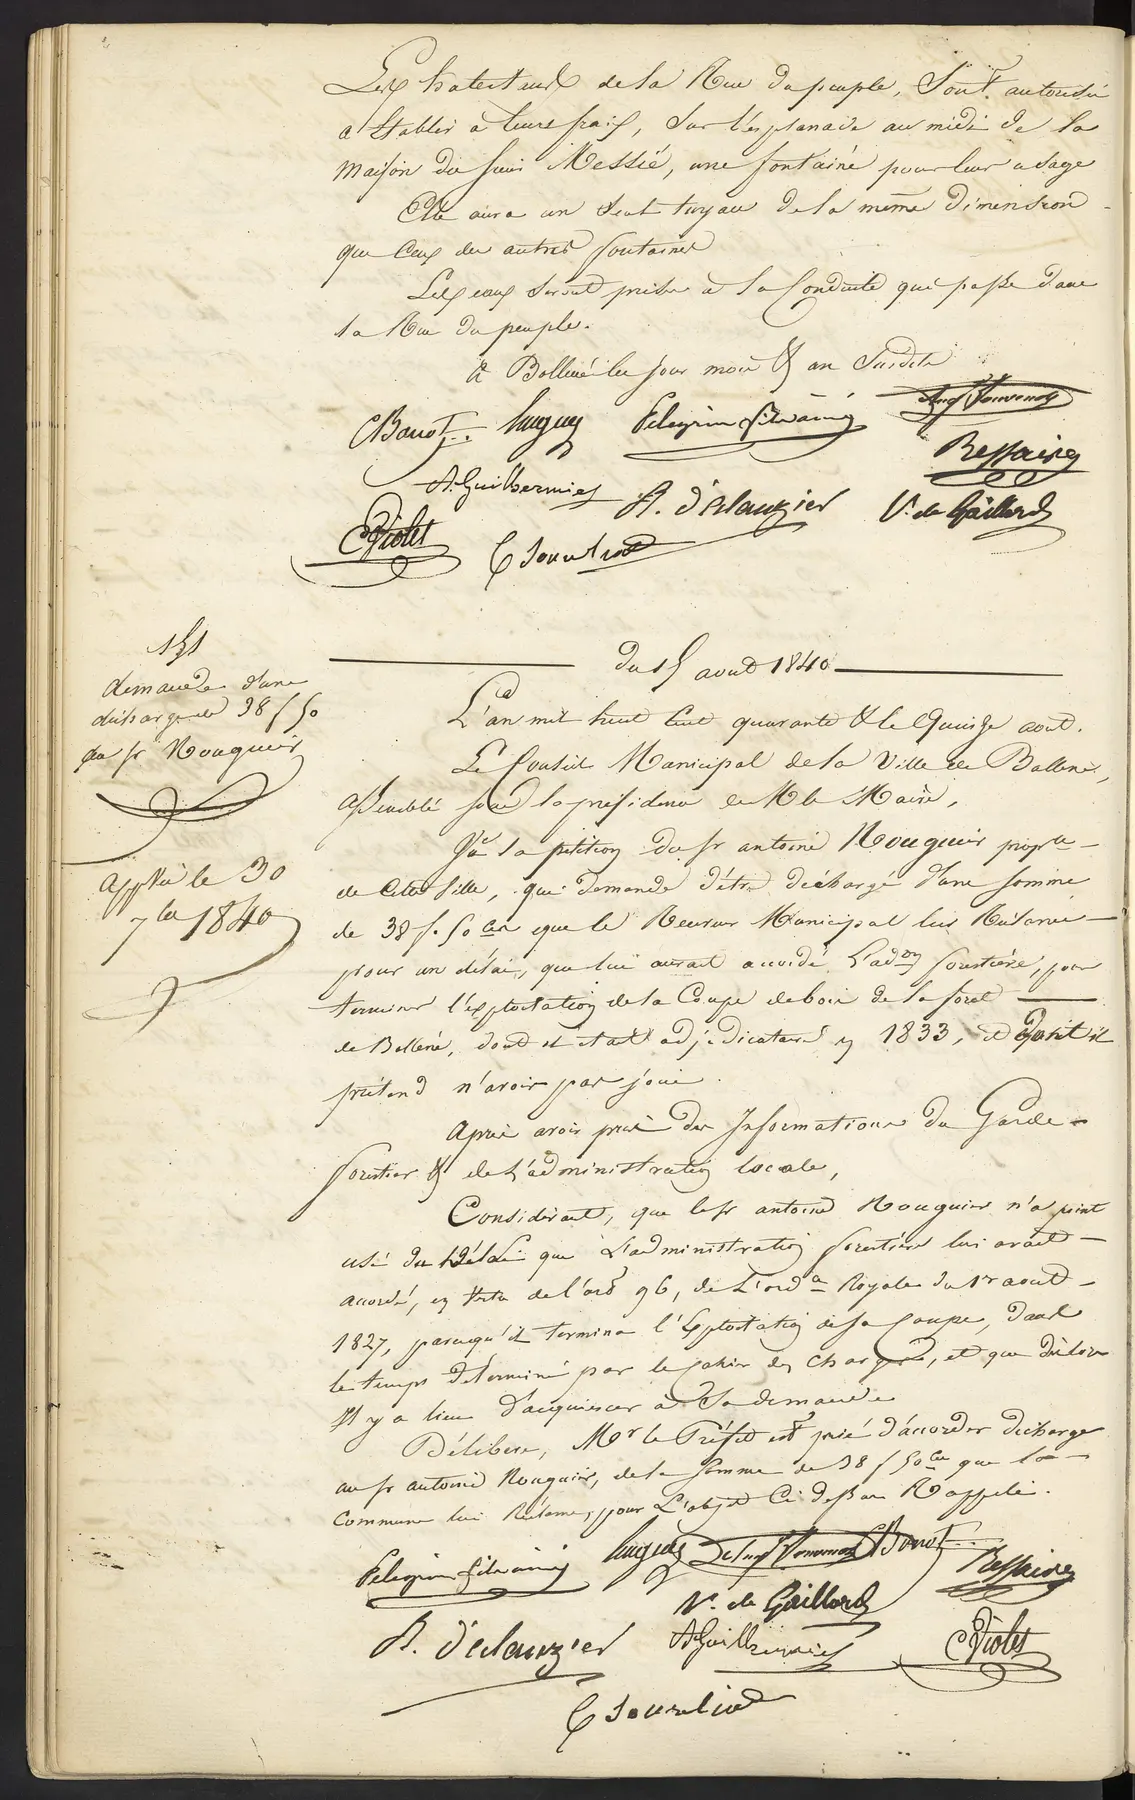 Les habitants de la Rue du peuple, Sont autorisés
a Etablir a leurs frais, Sur l'esplanade au midi de la
Maison du sieur Messié, une fontaine pour leur usage
Elle aura un seul tuyau de la même dimension
que Ceux des autres fontaines
Les eaux seront prises a la Conduite qui passe dans
la Rue du peuple.
A Bollène les jour mois & an Susdits
CBarot Pelegrin
Bessaires
A. Guilhermier R. d'Eslauzier V. de Gaillard
CViolet
du 15 aout 1840
151
demande d'une
décharge de 38 f 50
du sr Rouguier
appvé le 30
7bre 1840
L'an mil huit Cent quarante & le Quinze aout.
Le Conseil Municipal de la Ville de Bollène,
assemblé sous la présidence de M le Maire,
Vu la pétition du sr antoine Rouguier proprre
de Cette Ville, qui demande d'être déchargé d'une somme
de 38 f. 50 cen que le Receveur Municipal lui Réclame
pour un délai, que lui aurait accordé L'adon forestière, pour
terminer l'exploitation de la Coupe de bois de la foret
de Bollène, dont il etait adjudicataire en 1833, et dont il
prétend n'avoir pas joui.
Après avoir pris des Informations du Garde
forestier & de L'administration locale,
Considérant, que le sr antoine Rouguier n'a point
usé du délai que L'administration forestière lui avait
accordé, en Vertu de l'art 96, de L'orda Royale du 1er aout
1827, parcequ'il termina l'Exploitation de sa Coupe, dans
le temps déterminé par le Cahier des Charges, et que dèslors
Il y a lieu d'acquiescer a Sa demande
Délibère, Mr le Préfet est prié d'accorder décharge
au sr antoine Rouguier, de la somme de 38 f 50 ce que la
Commune lui Réclame, pour L'objet Ci dessus Rappelé.
Pelegrin CBarot
Bessaires
V. de Gaillard
R. d'Eslauzier A Guilhermier CViolet